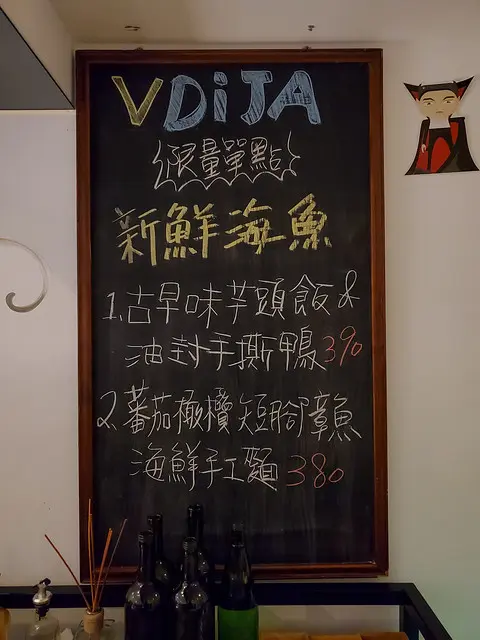 VDiJA
限量單點
新鮮海魚
1.古早味芋頭飯&
油封手撕鴨390
2.蕃茄橄欖短腳章魚
海鮮手工麵380